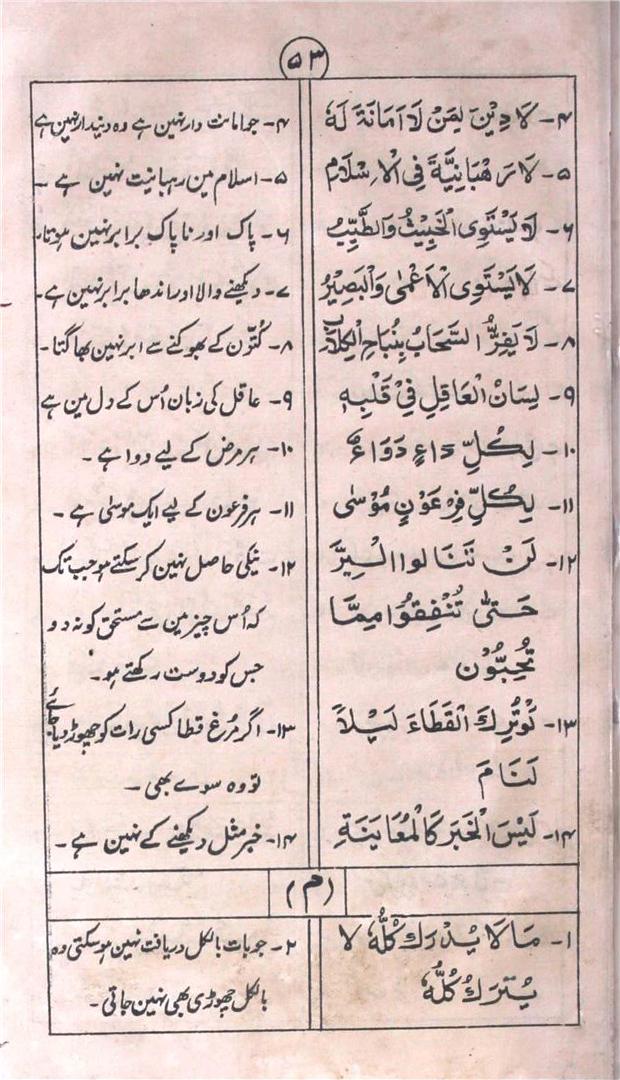 ۵۳
۴- لَا دِيْنَ لِمَنْ لَا اَمَانَةَ لَهٗ
۴- جو امانت دار نہین ہے وہ دیندار نہین ہے
۵- لَا رَهْبَانِيَّةَ فِي الْاِسْلَامِ
۵- اسلام مین رہبانیت نہین ہے -
۶- لَا يَسْتَوِى الْخَبِيْثُ وَالطَّيِّبُ
۶- پاک اور ناپاک برابر نہین ہوتا-
۷- لَا يَسْتَوِى الْاَعْمٰى وَالْبَصِيْرُ
۷- دیکھنے والا اور اندھا برابر نہین ہے-
۸- لَا يَفِرُّ السَّحَابُ بِنُبَاحِ الْكِلَابِ
۸- کُتّون کے بھوکنے سے ابر نہین بھاگتا-
۹- لِسَانُ الْعَاقِلِ فِيْ قَلْبِهٖ
۹- عاقل کی زبان اُس کے دل مین ہے
۱۰- لِكُلِّ دَاءٍ دَوَاءٌ
۱۰- ہر مرض کے لیے دوا ہے -
۱۱- لِكُلِّ فِرْعَوْنٍ مُوْسٰى
۱۱- ہر فرعون کے لیے ایک موسیٰ ہے -
۱۲- لَنْ تَنَالُوا الْبِرَّ
حَتّٰى تُنْفِقُوْا مِمَّا
تُحِبُّوْن
۱۲- نیکی حاصل نہین کر سکتے ہو جب تک
کہ اُس چیز مین سے مستحق کو نہ دو
جس کو دوست رکھتے ہو-
۱۳- لَوْ تُرِكَ الْقَطَاءَ لَيْلًا
لَنَامَ
۱۳- اگر مُرغ قطا کسی رات کو چھوڑ دیا جائے
تو وہ سوے بھی -
۱۴- لَيْسَ الْخَبَرَ كَالْمُعَايَنَةِ
۱۴- خبر مثل دیکھنے کے نہین ہے -
(م)
۱- مَا لَا يُدْرَكُ كُلُّهٗ لَا
يُتْرَكُ كُلُّهٗ
۲- جو بات بالکل دریافت نہین ہو سکتی وہ
بالکل چھوڑی بھی نہین جاتی -